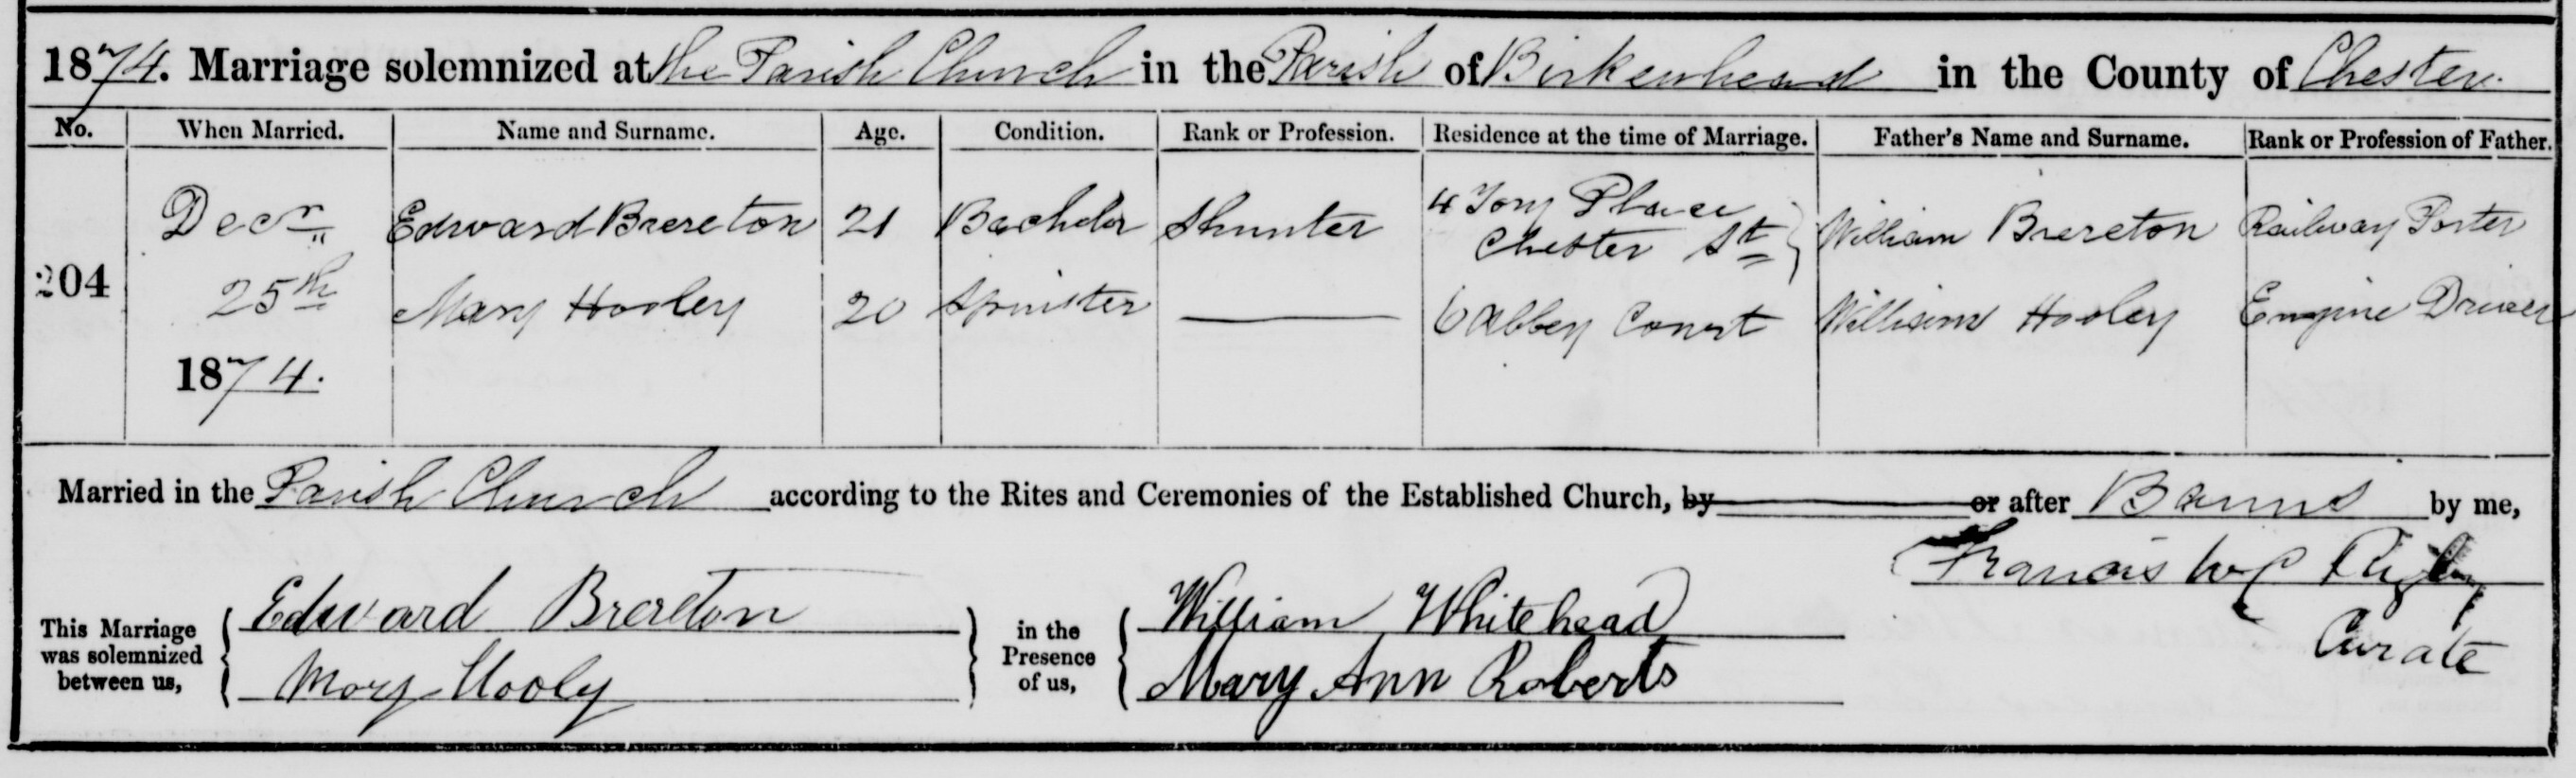 1874. Marriage solemnized at the Parish Church in the Parish of Birkenhead in the County of Chester.
No. When Married. Name and Surname. Age. Condition. Rank or Profession. Residence at the time of Marriage. Father's Name and Surname. Rank or Profession of Father.
204
Decr 25th 1874.
Edward Brereton 21 Bachelor Shunter 4 Place Chester St William Brereton Railway Porter
Mary Hooley 20 Spinster 6 Abbey Court William Hooley Engine Driver
Married in the Parish Church according to the Rites and Ceremonies of the Established Church, by or after Banns by me,
Francis Rigby
Curate
This Marriage was solemnized between us,
Edward Brereton
Mary Hooly
in the Presence of us,
William Whitehead
Mary Ann Roberts